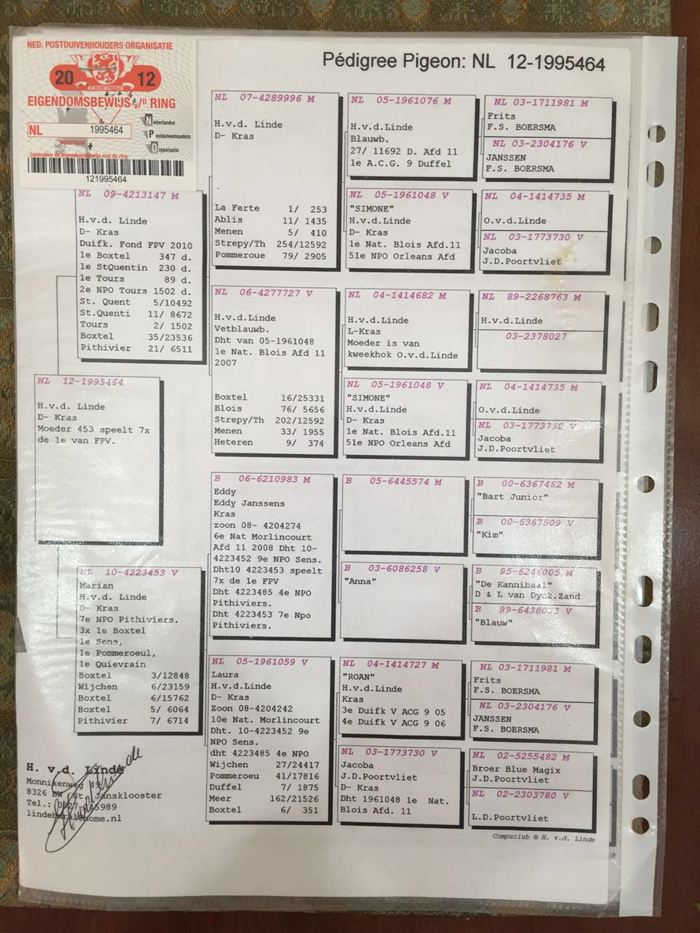 NED. POSTDUIVENHOUDERS ORGANISATIE
20 12
EIGENDOMSBEWIJS v/d RING
NL 1995464
Nederlandse
Postduivenhouders
Organisatie
121995464
Pédigree Pigeon: NL 12-1995464
NL 12-1995464
H.v.d. Linde
D- Kras
Moeder 453 speelt 7x
de 1e van FPV.
NL 09-4213147 M
H.v.d. Linde
D- Kras
Duifk. Fond FPV 2010
1e Boxtel 347 d.
1e StQuentin 230 d.
1e Tours 89 d.
2e NPO Tours 1502 d.
St. Quent 5/10492
St.Quenti 11/ 8672
Tours 2/ 1502
Boxtel 35/23536
Pithivier 21/ 6511
NL 10-4223453 V
Marian
H.v.d. Linde
D- Kras
7e NPO Pithiviers.
3x 1e Boxtel
1e Sens,
1e Pommeroeul,
1e Quievrain
Boxtel 3/12848
Wijchen 6/23159
Boxtel 6/15762
Boxtel 5/ 6064
Pithivier 7/ 6714
NL 07-4289996 M
H.v.d. Linde
D- Kras
La Ferte 1/ 253
Ablis 11/ 1435
Menen 5/ 410
Strepy/Th 254/12592
Pommeroue 79/ 2905
NL 06-4277727 V
H.v.d. Linde
Vetblauwb.
Dht van 05-1961048
1e Nat. Blois Afd 11
2007
Boxtel 16/25331
Blois 76/ 5656
Strepy/Th 202/12592
Menen 33/ 1955
Heteren 9/ 374
B 06-6210983 M
Eddy
Eddy Janssens
Kras
zoon 08- 4204274
6e Nat Morlincourt
Afd 11 2008 Dht 10-
4223452 9e NPO Sens.
Dht10 4223453 speelt
7x de 1e FPV
Dht 4223485 4e NPO
Pithiviers.
Dht 4223453 7e Npo
Pithiviers.
NL 05-1961059 V
Laura
H.v.d.Linde
D- Kras
Zoon 08-4204242
10e Nat. Morlincourt
Dht. 10-4223452 9e
NPO Sens.
dht 4223485 4e NPO
Wijchen 27/24417
Pommeroeu 41/17816
Duffel 7/ 1875
Meer 162/21526
Boxtel 6/ 351
NL 05-1961076 M
H.v.d.Linde
Blauwb.
27/ 11692 D. Afd 11
1e A.C.G. 9 Duffel
NL 05-1961048 V
"SIMONE"
H.v.d.Linde
D- Kras
1e Nat. Blois Afd.11
51e NPO Orleans Afd
NL 04-1414682 M
H.v.d.Linde
L-Kras
Moeder is van
kweekhok O.v.d.Linde
NL 05-1961048 V
"SIMONE"
H.v.d.Linde
D- Kras
1e Nat. Blois Afd.11
51e NPO Orleans Afd
B 05-6445574 M
B 03-6086258 V
"Anna"
NL 04-1414727 M
"ROAN"
H.v.d.Linde
Kras
3e Duifk V ACG 9 05
4e Duifk V ACG 9 06
NL 03-1773730 V
Jacoba
J.D.Poortvliet
D- Kras
Dht 1961048 1e Nat.
Blois Afd. 11
NL 03-1711981 M
Frits
F.S. BOERSMA
NL 03-2304176 V
JANSSEN
F.S. BOERSMA
NL 04-1414735 M
O.v.d.Linde
NL 03-1773730 V
Jacoba
J.D.Poortvliet
NL 89-2268763 M
H.v.d.Linde
03-2378027
NL 04-1414735 M
O.v.d.Linde
NL 03-1773730 V
Jacoba
J.D.Poortvliet
B 00-6367452 M
"Bart Junior"
B 00-6367509 V
"Kim"
B 95-6246005 M
"De Kannibaal"
D & L van Dyck.Zand
B 99-6438053 V
"Blauw"
NL 03-1711981 M
Frits
F.S. BOERSMA
NL 03-2304176 V
JANSSEN
F.S. BOERSMA
NL 02-5255482 M
Broer Blue Magix
J.D.Poortvliet
NL 02-2303780 V
L.D.Poortvliet
H. v.d. Linde
Monnikenweg
8326 Jansklooster
Tel.:
Compuclub © H. v.d. Linde